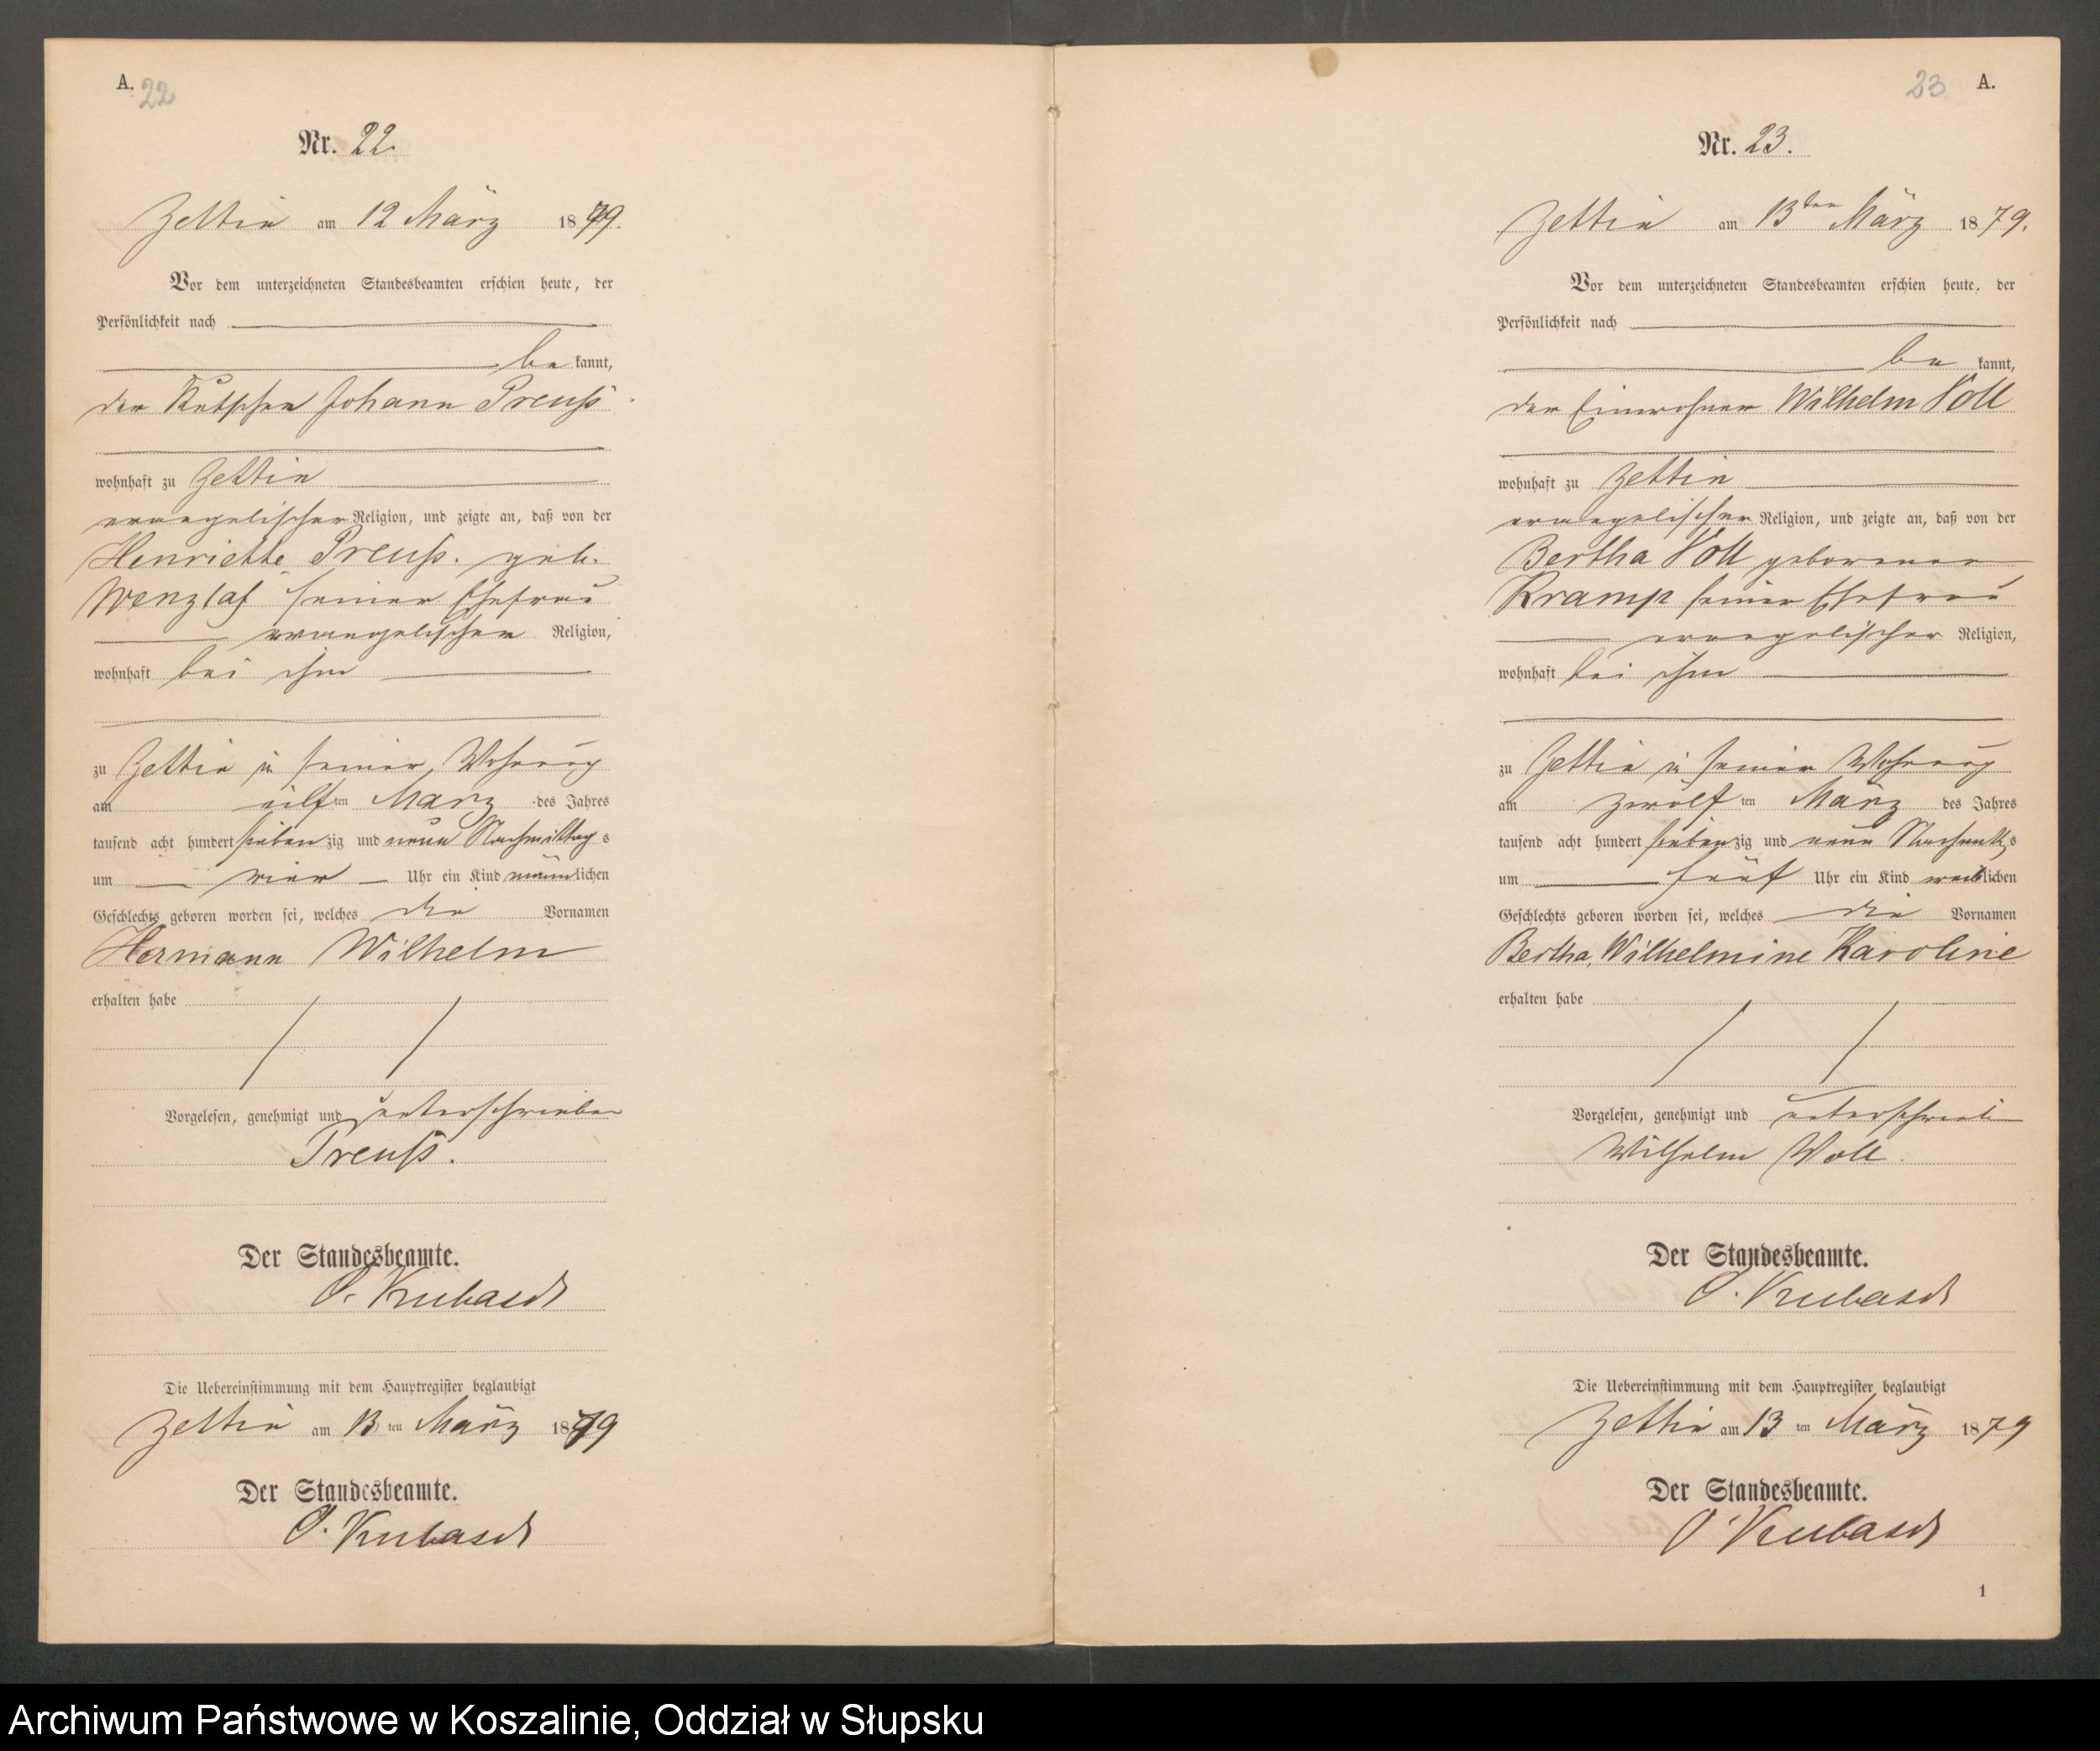 A.
22
Nr. 22.
Zettin am 12 März 1879.
Vor dem unterzeichneten Standesbeamten erschien heute, der
Persönlichkeit nach
be kannt,
der Kutscher Johann Preuß
wohnhaft zu Zettin
evangelischer Religion, und zeigte an, daß von der
Henriette Preuß. geb.
Wenzlaf seiner Ehefrau
evangelischer Religion,
wohnhaft bei ihm
zu Zettin in seiner Wohnung
am eilf ten März des Jahres
tausend acht hundert sieben zig und neun Nachmittag s
um vier Uhr ein Kind männlichen
Geschlechts geboren worden sei, welches die Vornamen
Hermann Wilhelm
erhalten habe
Vorgelesen, genehmigt und unterschrieben
Preuß.
Der Standesbeamte.
Die Uebereinstimmung mit dem Hauptregister beglaubigt
Zettin am 13 ten März 1879
Der Standesbeamte.
23 A.
Nr. 23.
Zettin am 13ten März 1879.
Vor dem unterzeichneten Standesbeamten erschien heute, der
Persönlichkeit nach
be kannt,
der Einwohner Wilhelm Voll
wohnhaft zu Zettin
evangelischer Religion, und zeigte an, daß von der
Bertha Voll geborenen
Kramp seiner Ehefrau
evangelischer Religion,
wohnhaft bei ihm
zu Zettin in seiner Wohnung
am zwölf ten März des Jahres
tausend acht hundert sieben zig und neun Nachmitt s
um fünf Uhr ein Kind weiblichen
Geschlechts geboren worden sei, welches die Vornamen
Bertha, Wilhelmine Karoline
erhalten habe
Vorgelesen, genehmigt und unterschrieben
Wilhelm Voll.
Der Standesbeamte.
Die Uebereinstimmung mit dem Hauptregister beglaubigt
Zettin am 13 ten März 1879
Der Standesbeamte.
1
Archiwum Państwowe w Koszalinie, Oddział w Słupsku